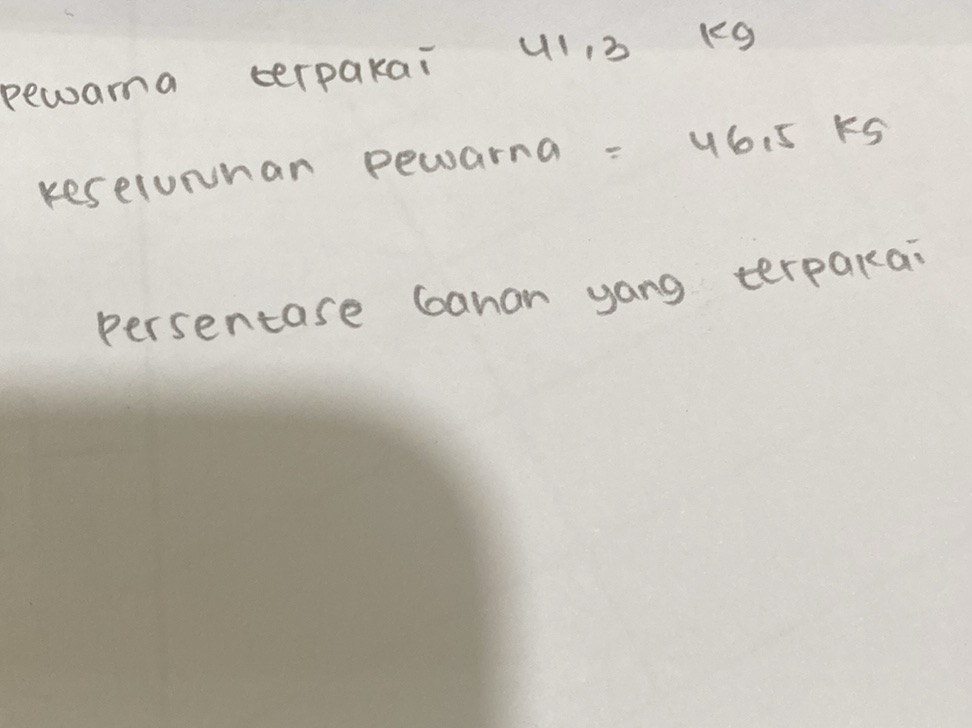 pewarna terpakai 41,3 kg
keseluruhan pewarna = 46,5 kg
persentase bahan yang terpakai